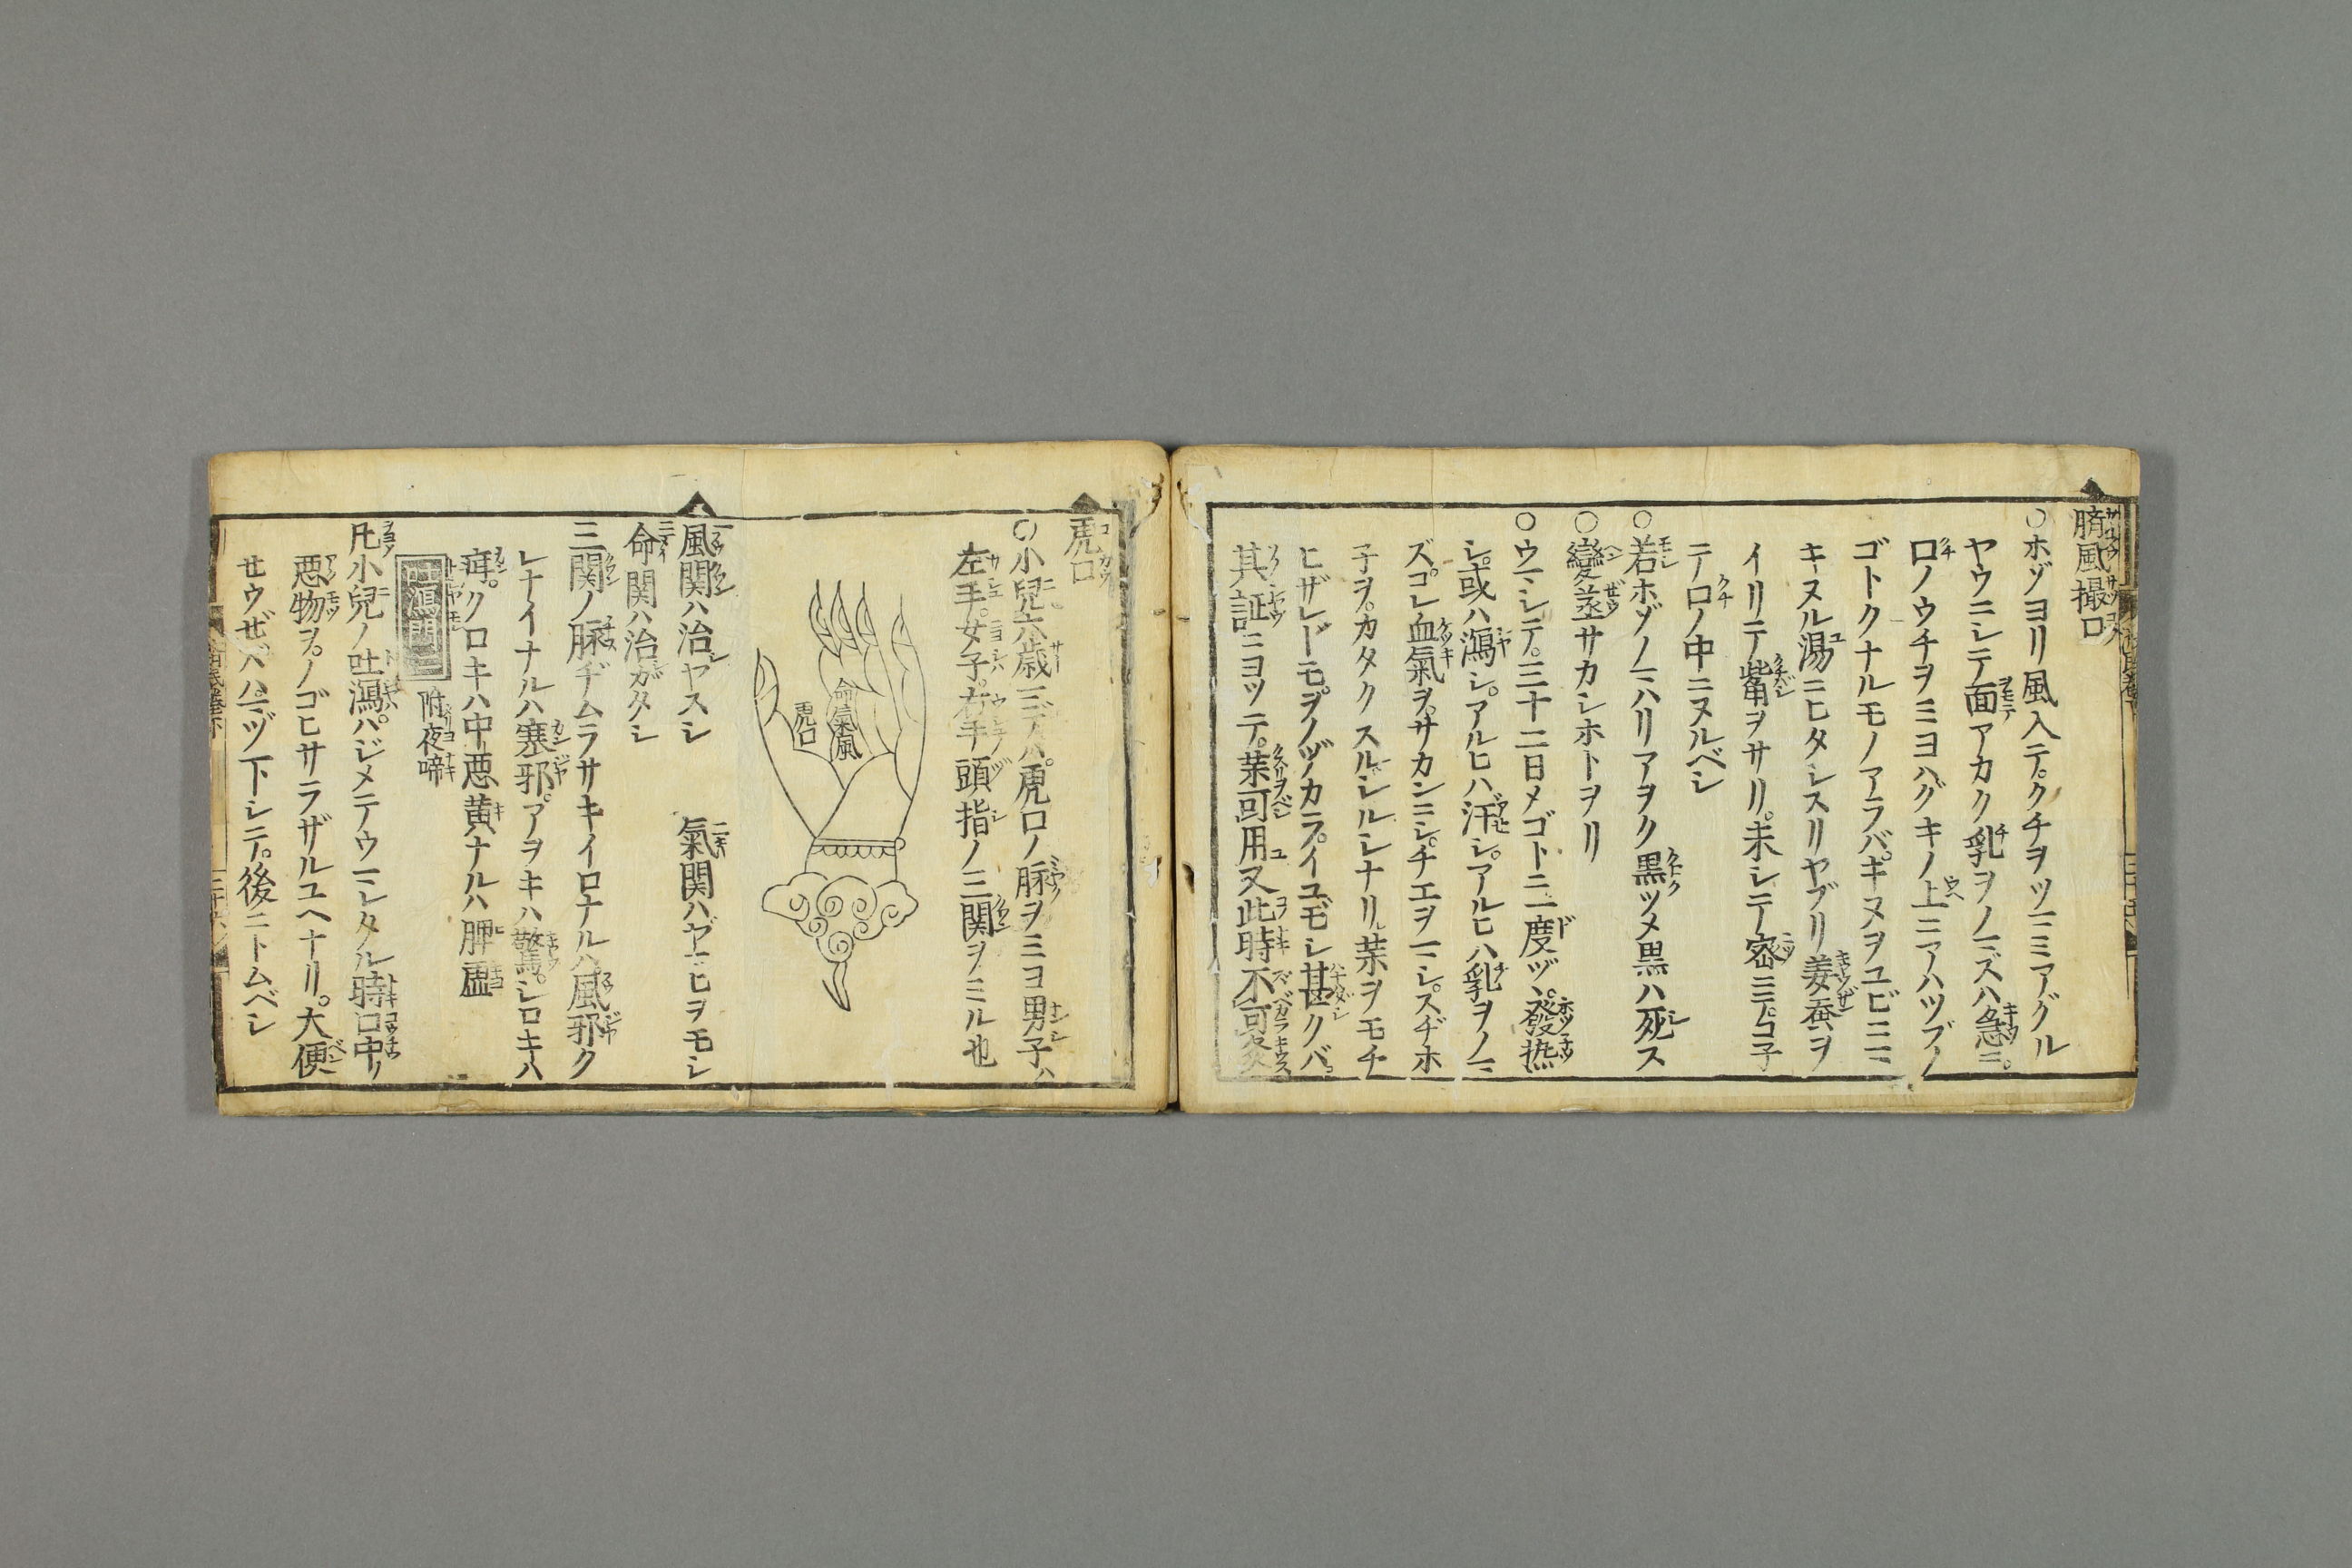 臍風撮口
○ホゾヨリ風入テ。クチヲツヽミアグル
ヤウニシテ面アカク乳ヲノマズハ急ニ。
口ノウチヲミヨハグキノ上ニアハツブノ
ゴトクナルモノアラバ。キヌヲユビニマ
キヌル湯ニヒタシスリヤブリ姜蚕ヲ
イリテ觜ヲサリ。末シテ密ニテコ子
テ口ノ中ニヌルベシ
○若ホゾノマハリアヲク黒ツメ黒ハ死ス
○變蒸サカシホトヲリ
○ウマレテ。三十二日メゴトニ一度ヅヽ。發熱
シ。或ハ瀉シ。アルヒハ汗シ。アルヒハ乳ヲノマ
ズコレ血氣ヲ。サカンニシ。チエヲマシ。スヂホ
子ヲ。カタクスルシルシナリ。藥ヲモチ
ヒザレドモヲノヅカライユモシ甚クバ。
其証ニヨツテ。藥可用又此時不可灸
虎口
○小兒六歳マデハ。虎口ノ脈ヲミヨ男子ハ
左手。女子。右手頭指ノ三関ヲミル也
命氣風
虎口
風関ハ治ヤスシ 氣関ハヤマヒヲモシ
命関ハ治ガタシ
三関ノ脈ヂムラサキイロナルハ風邪ク
レナイナルハ寒邪。アヲキハ驚。シロキハ
疳。クロキハ中悪黄ナルハ脾虚
吐瀉門三 附夜啼
凡小兒ノ吐瀉ハジメテウマレタル時口中ノ
悪物ヲ。ノゴヒサラザルユヘナリ。大便
セウゼバハマヅ下シテ。後ニトムベシ